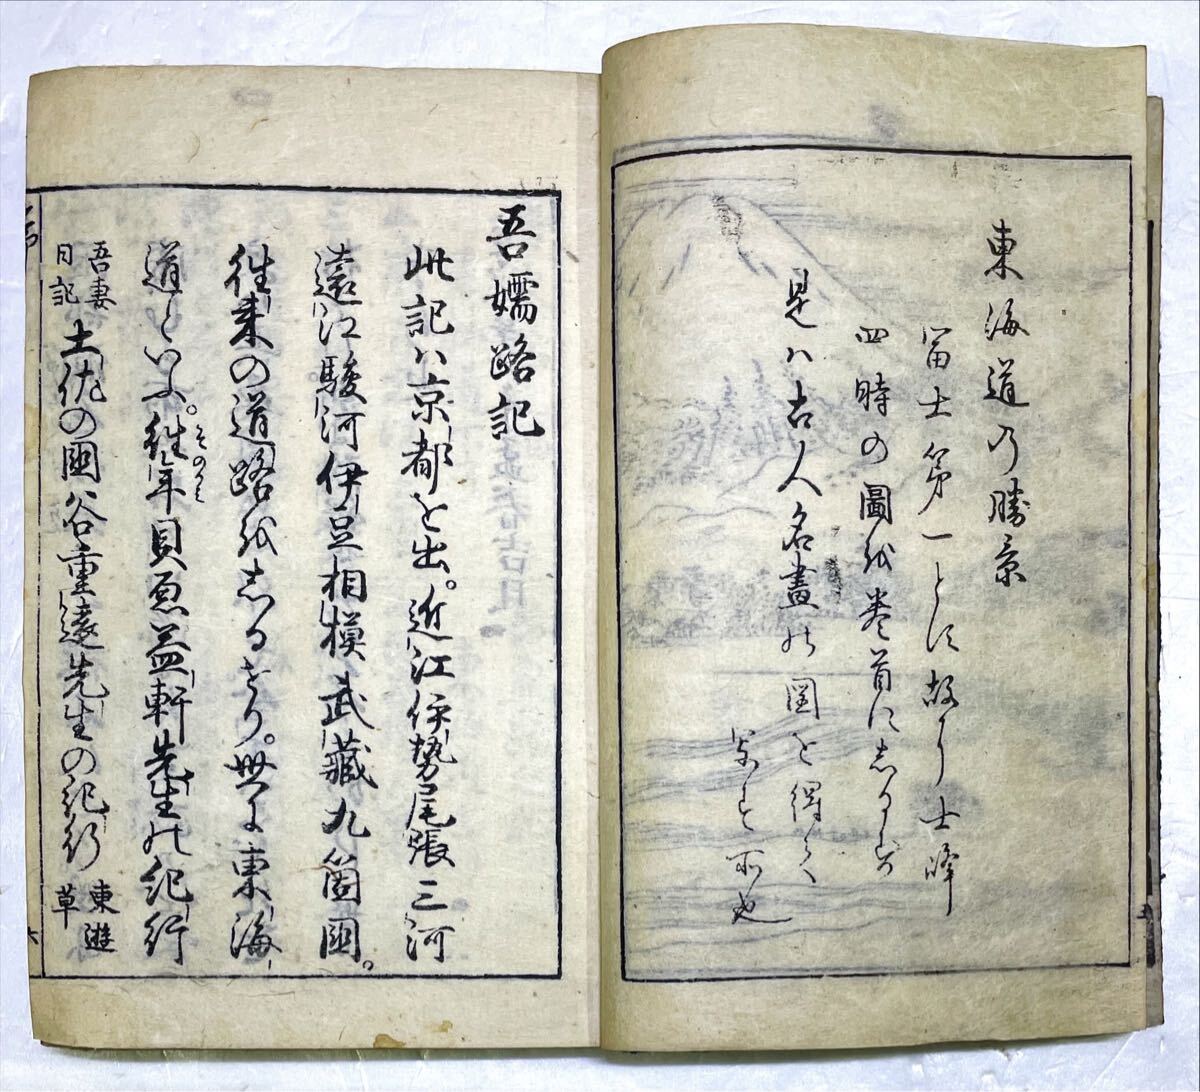 東海道乃勝景
冨士第一とす故に士峰
四時の圖を巻首にしるす
是ハ古人名畫の圖を得て
写す所也
吾嬬路記
此記ハ京都を出。近江伊勢尾張三河
遠江駿河伊豆相模武藏九箇國。
徃来の道路を志るせり。世に東海
道といふ。徃年貝原益軒先生の紀行
そのかミ
吾妻
日記
土佐の國谷重遠先生の紀行
東遊
草